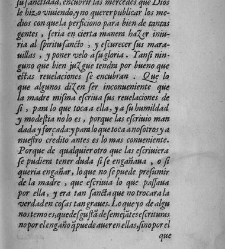 su sanctidad, encubrir las mercedes que Dios
le hizo viuiendo, y no querer publicar los me
dios con que la perficiono para bien de tantas
gentes, seria en cierta manera hazer iniu
ria al spiritu sancto, y escurecer sus mara
uillas, y poner velo a su gloria. Y ansi nin
guno que bien juzgue tendra por bueno que
estas reuelaciones se encubran. Que lo
que algunos dizen ser inconueniente que
la madre misma escriua sus reuelaciones de
si, para lo que toca a ella, y a su humildad
y modestia no lo es, porque las escriuio man
dada y forçada y para lo que toca a nosotros y a
nuestro credito antes es lo mas conueniente.
Porque de qualquier otro que las escriuiera
se pudiera tener duda si se engañaua, o si
queria engañar, lo que no se puede presumir
de la madre, que escriuia lo que passaua
por ella, y era tan sancta que no trocara la
verdad en cosas tan graues. Lo que yo de algu
nos temo es, que desgustã de semejãtes escrituras
no por el engaño q̃ puede auer en ellas, sino por el
que